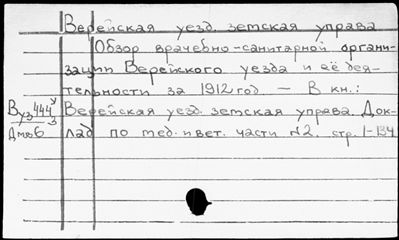 Верейская уезд. земская управа
Обзор врачебно-санитарной органи-
зации Верейского уезда и её дея-
тельности за 1912 год — В кн.:
Верейская уезд. земская управа. Док-
лад по мед. и вет. части №2. стр. 1-134